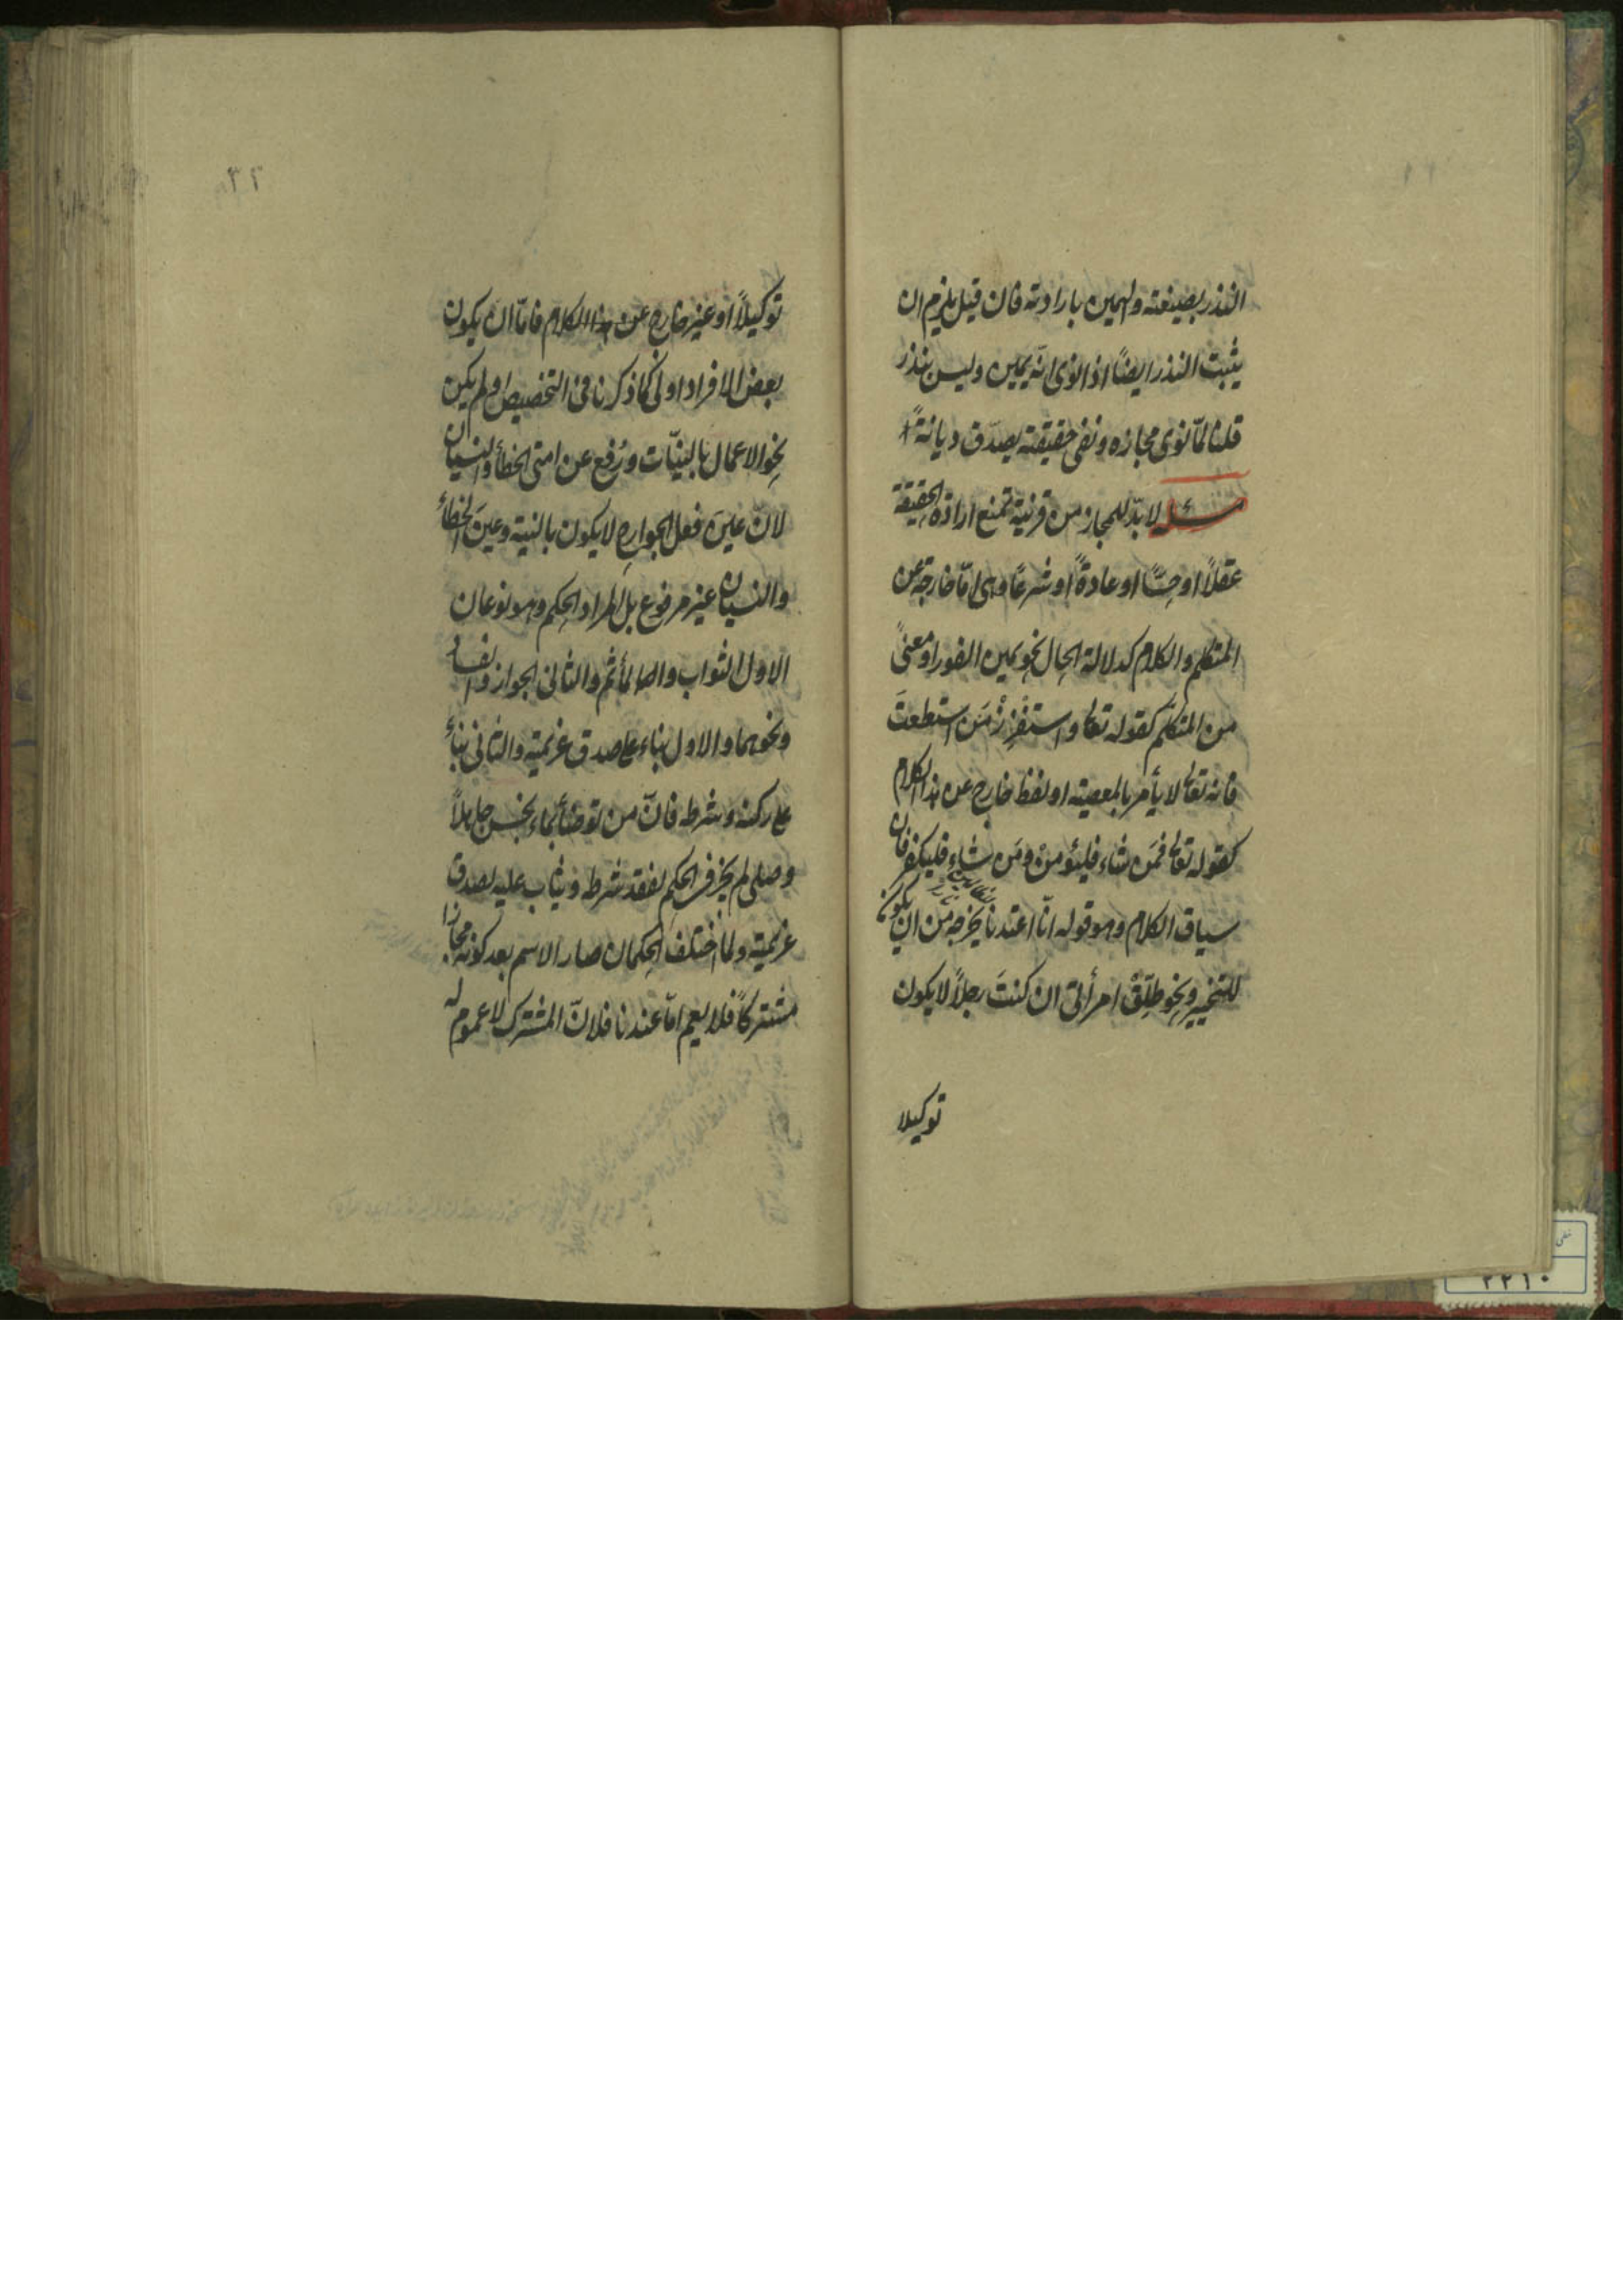 النذر بصيغته واليمين بارادته فان قيل يلزم ان
يثبت النذر ايضًا اذا نوى انّه يمين وليس بنذر
قلنا لمّا نوى مجازه ونفى حقيقته يصدّق ديانةً
مسئلة لا بدّ للمجاز من قرينة تمنع ارادة الحقيقة
عقلًا او حسًّا او عادةً او شرعًا وهى امّا خارجة عن
المتكلم والكلام كدلالة الحال نحو يمين الفور او معنىً
من المتكلّم كقوله تعا واستفزز مَن استطعتَ
فانه تعالى لا يأمر بالمعصية او لفظ خارج عن هذا الكلام
كقوله تعالى فمَن شاء فليؤمنْ ومَن شاء فليكفر فان
سياق الكلام وهو قوله انّا اعتدنا يخرجه من ان يكون
للتخيير ونحو طلّقْ امرأتى ان كنتَ رجلًا لا يكون
توكيلا
٣٢
توكيلًا او غير خارج عن هذا الكلام فامّا ان يكون
بعض الافراد اولى كما ذكرنا فى التخصيص او لم يكن
نحو الاعمال بالنيّات ورُفع عن امتى الخطأ والنسيان
لانّ عينَ فعل الجوارح لا يكون بالنية وعينَ الخطأ
والنسيان غير مرفوع بل المراد الحكم وهو نوعان
الاول الثواب والمأثم والثانى الجواز والفساد
ونحوهما والاول بناء على صدق عزيمته والثانى بناءً
على ركنه وشرطه فانّ من توضأ بماء نجس جاهلًا
وصلى لم يجز فى الحكم لفقد شرطه ويثاب عليه لصدق
عزيمته ولما اختلف الحكمان صار الاسم بعد كونه مجازا
مشتركًا فلا يعم امّا عندنا فلانّ المشترك لا عموم له
٢٢١٠